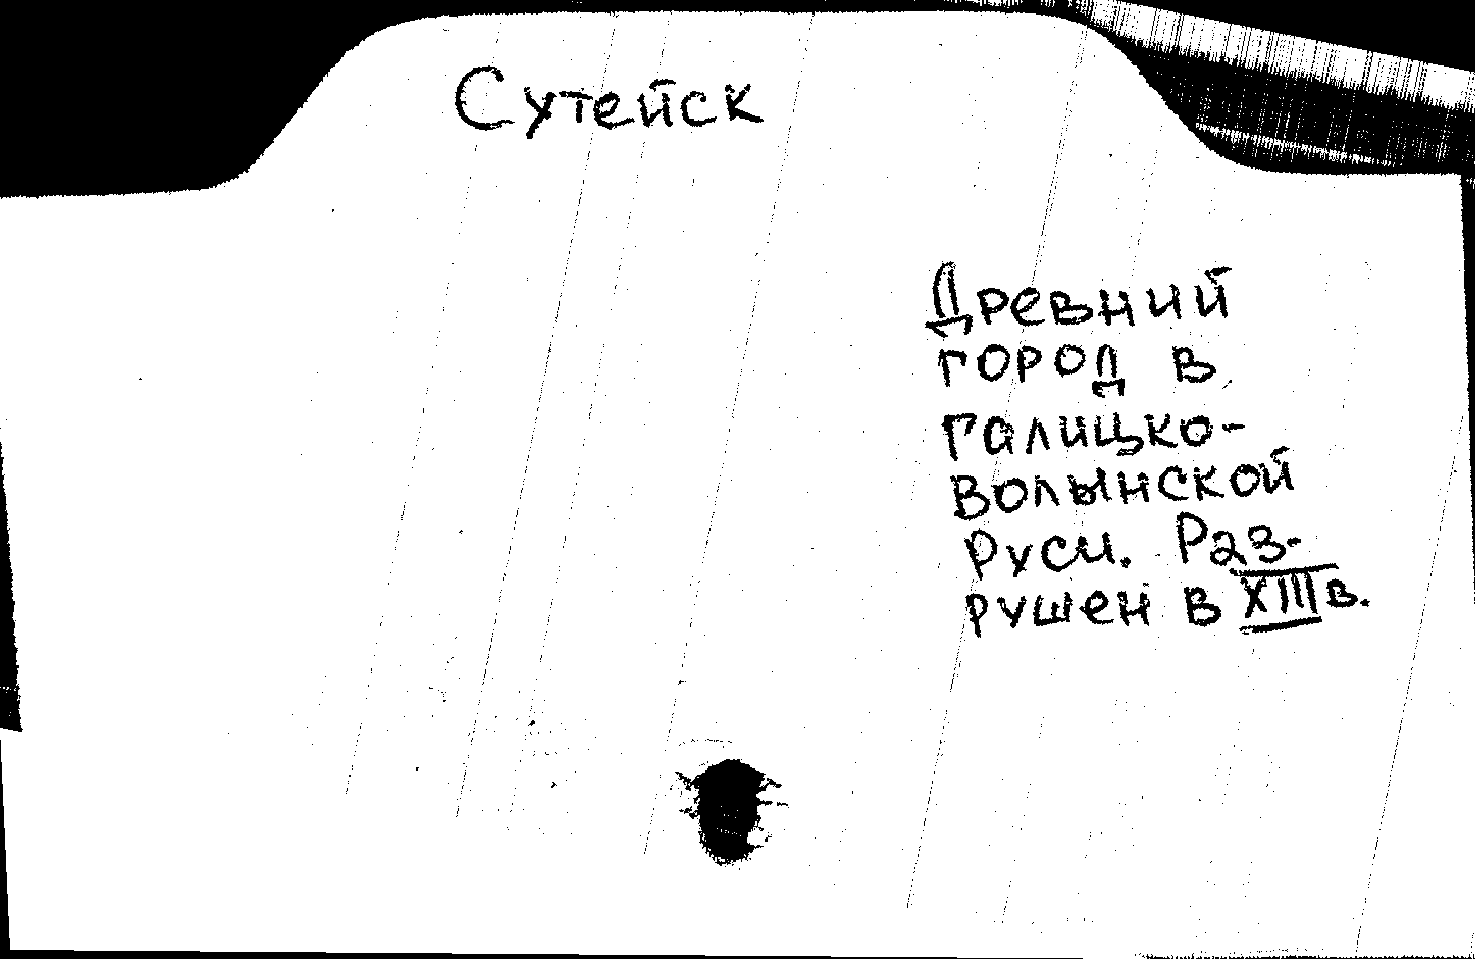 Сутейск
Древний
город в
Галицко-
Волынской
Руси. Раз-
рушен в XIII в.